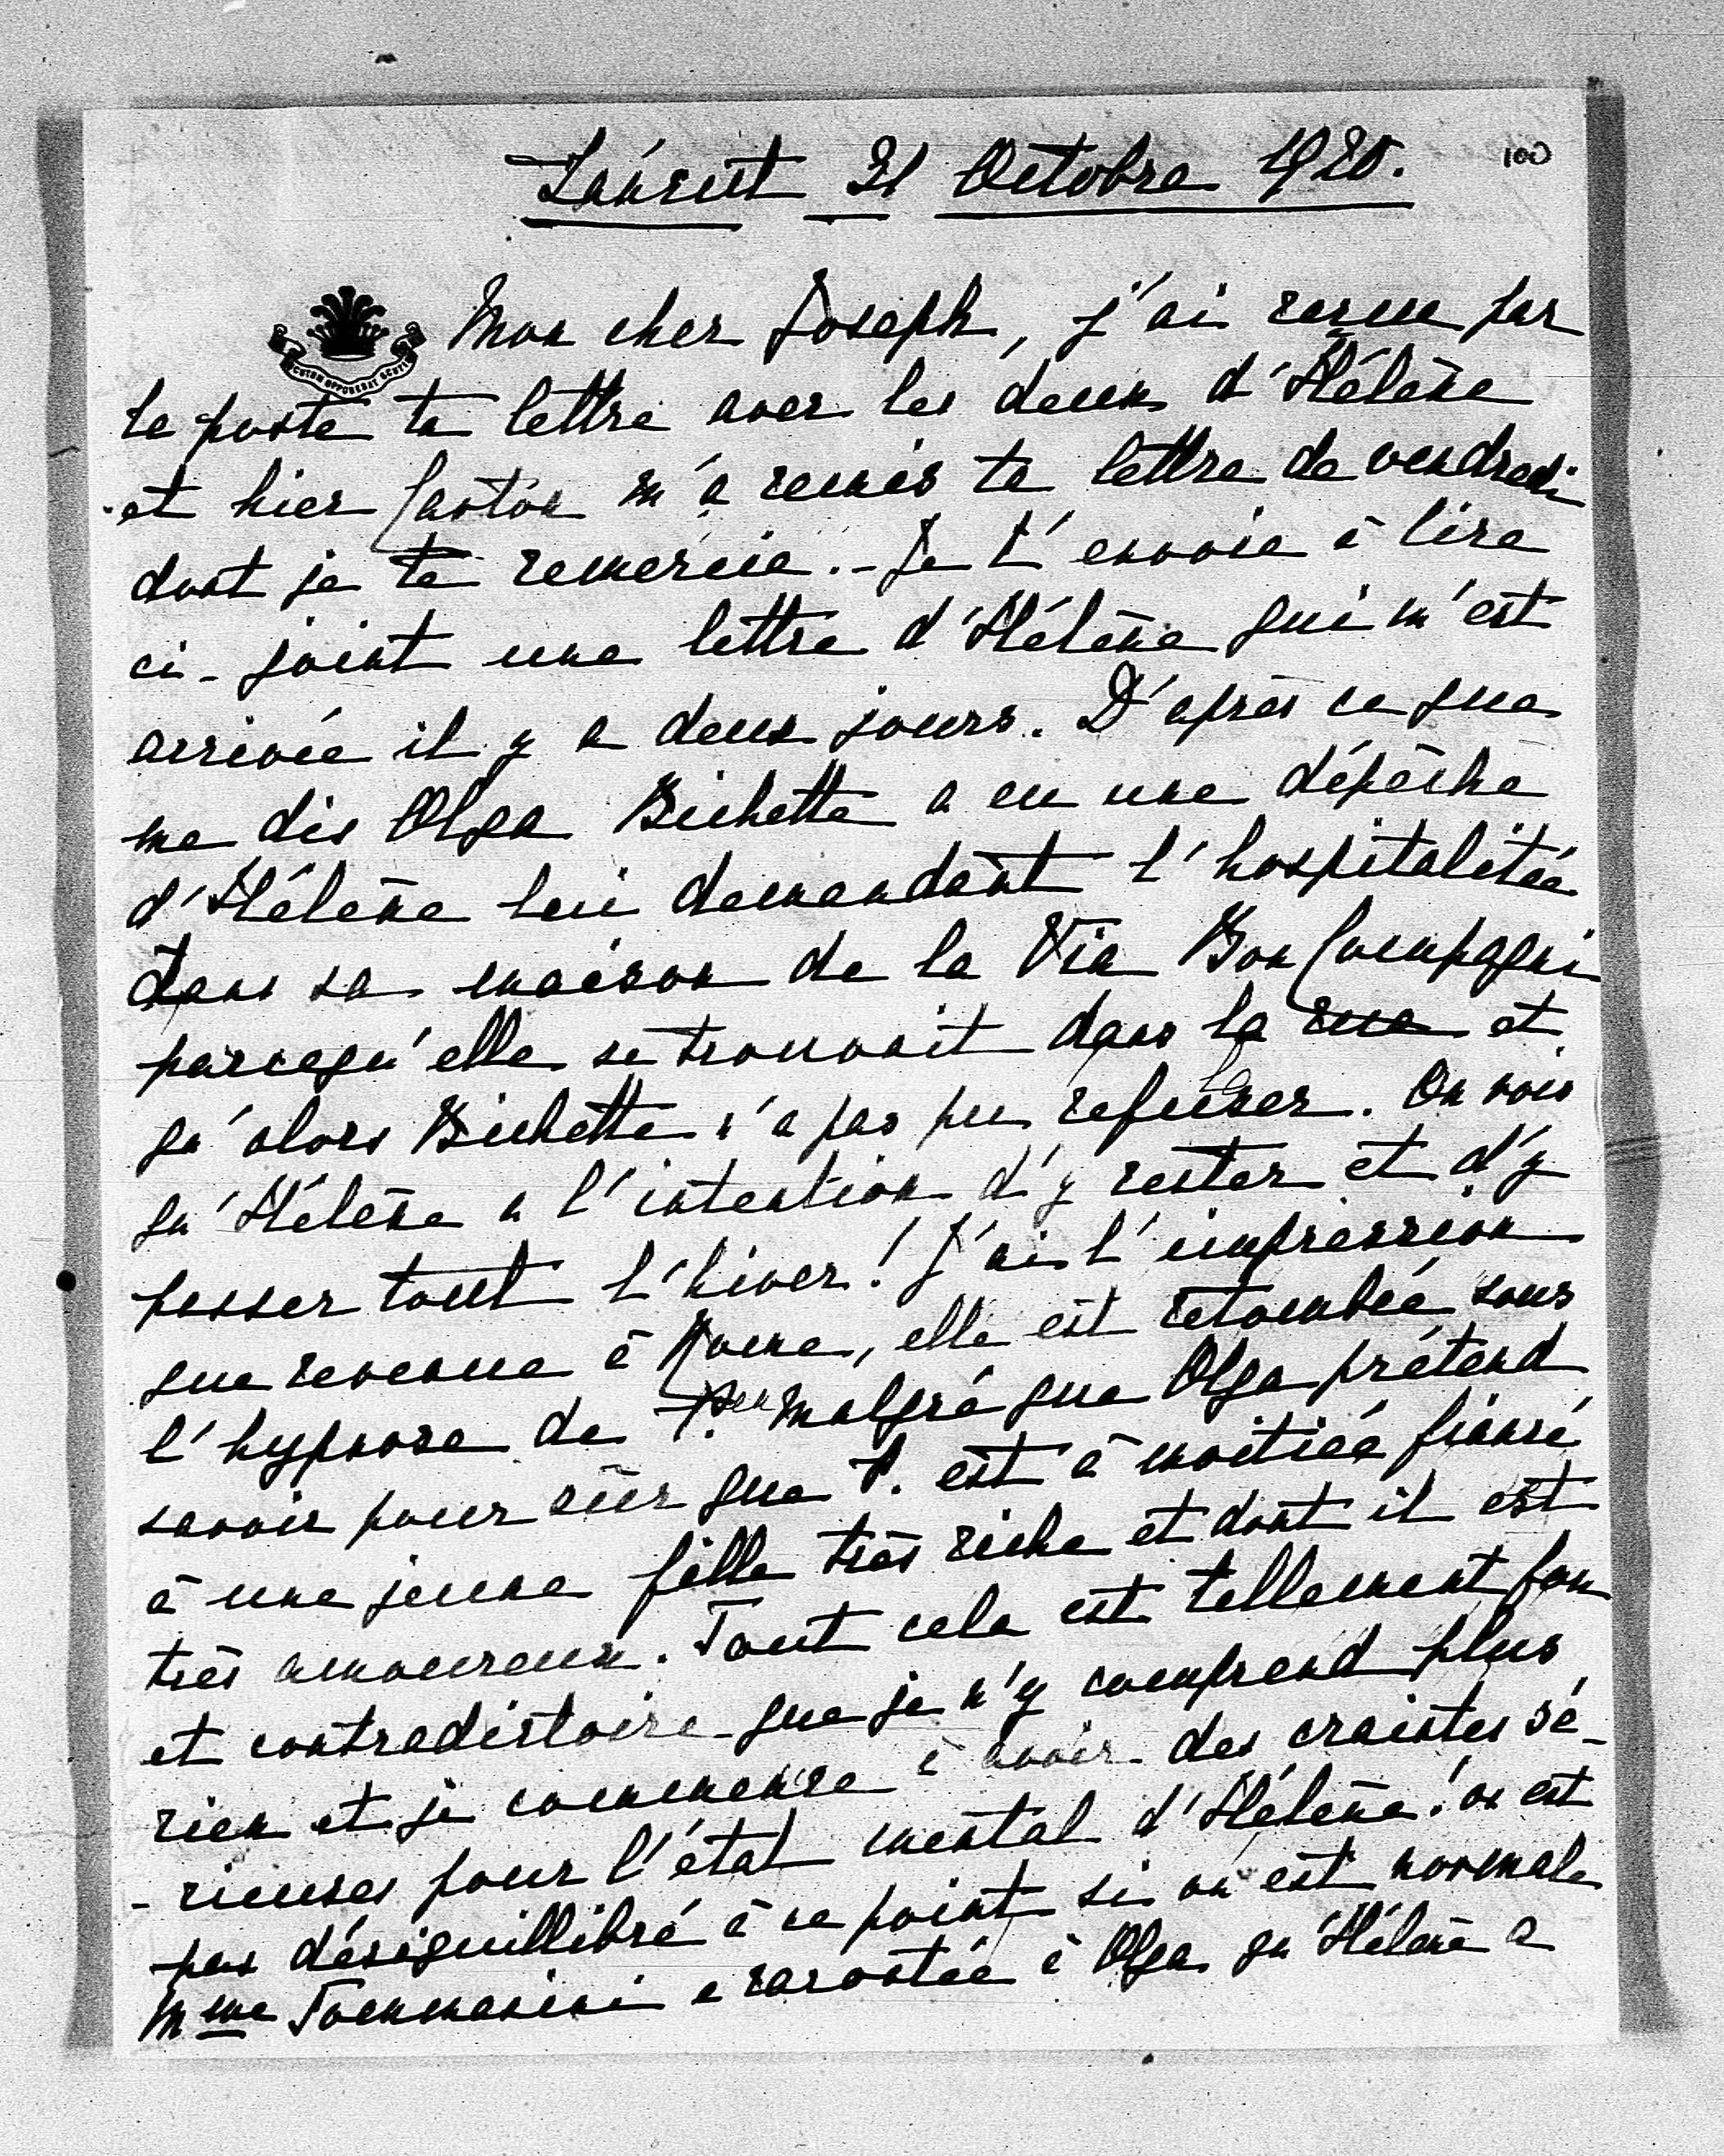 Läncut 21 Octobre 1920.
001
Mon cher Joseph, j'ai reçue par
SCUTUM OPPONEBAT SCUTIS
la poste ta lettre avec les deux d'Hélène
et hier Gaston m'a remis ta lettre de vendredi
dont je te remercie. - Je t'envoie à lire
ci-joint une lettre d'Hélène qui m'est
arrivée il y a deux jours. D'après ce que
me dis Olga Bichette a eu une dépêche
d'Hélène lui demandant l'hospitalitée
dans sa maison de la Via Bon Compagni
parcequ'elle se trouvait dans la rue et
qu'alors Bichette n'a pas pu refuser. On vois
qu'Hélène a l'intention d'y rester et d'y
passer tout l'hiver! J'ai l'impression
que revenue à Rome, elle est retombée sous
l'hypnose de P. malgré que Olga prétend
savoir pour sûr que P. est à moitiée fiancé
à une jeune fille très riche et dont il est
très amoureux. Tout cela est tellement fou
et contradictoire que je n'y comprend plus
rien et je commence à avoir des craintes sé-
-rieuses pour l'état mental d'Hélène! on est
pas déséquillibré à ce point si on est normale
Mme Tommasini a racontée à Olga qu'Hélène a